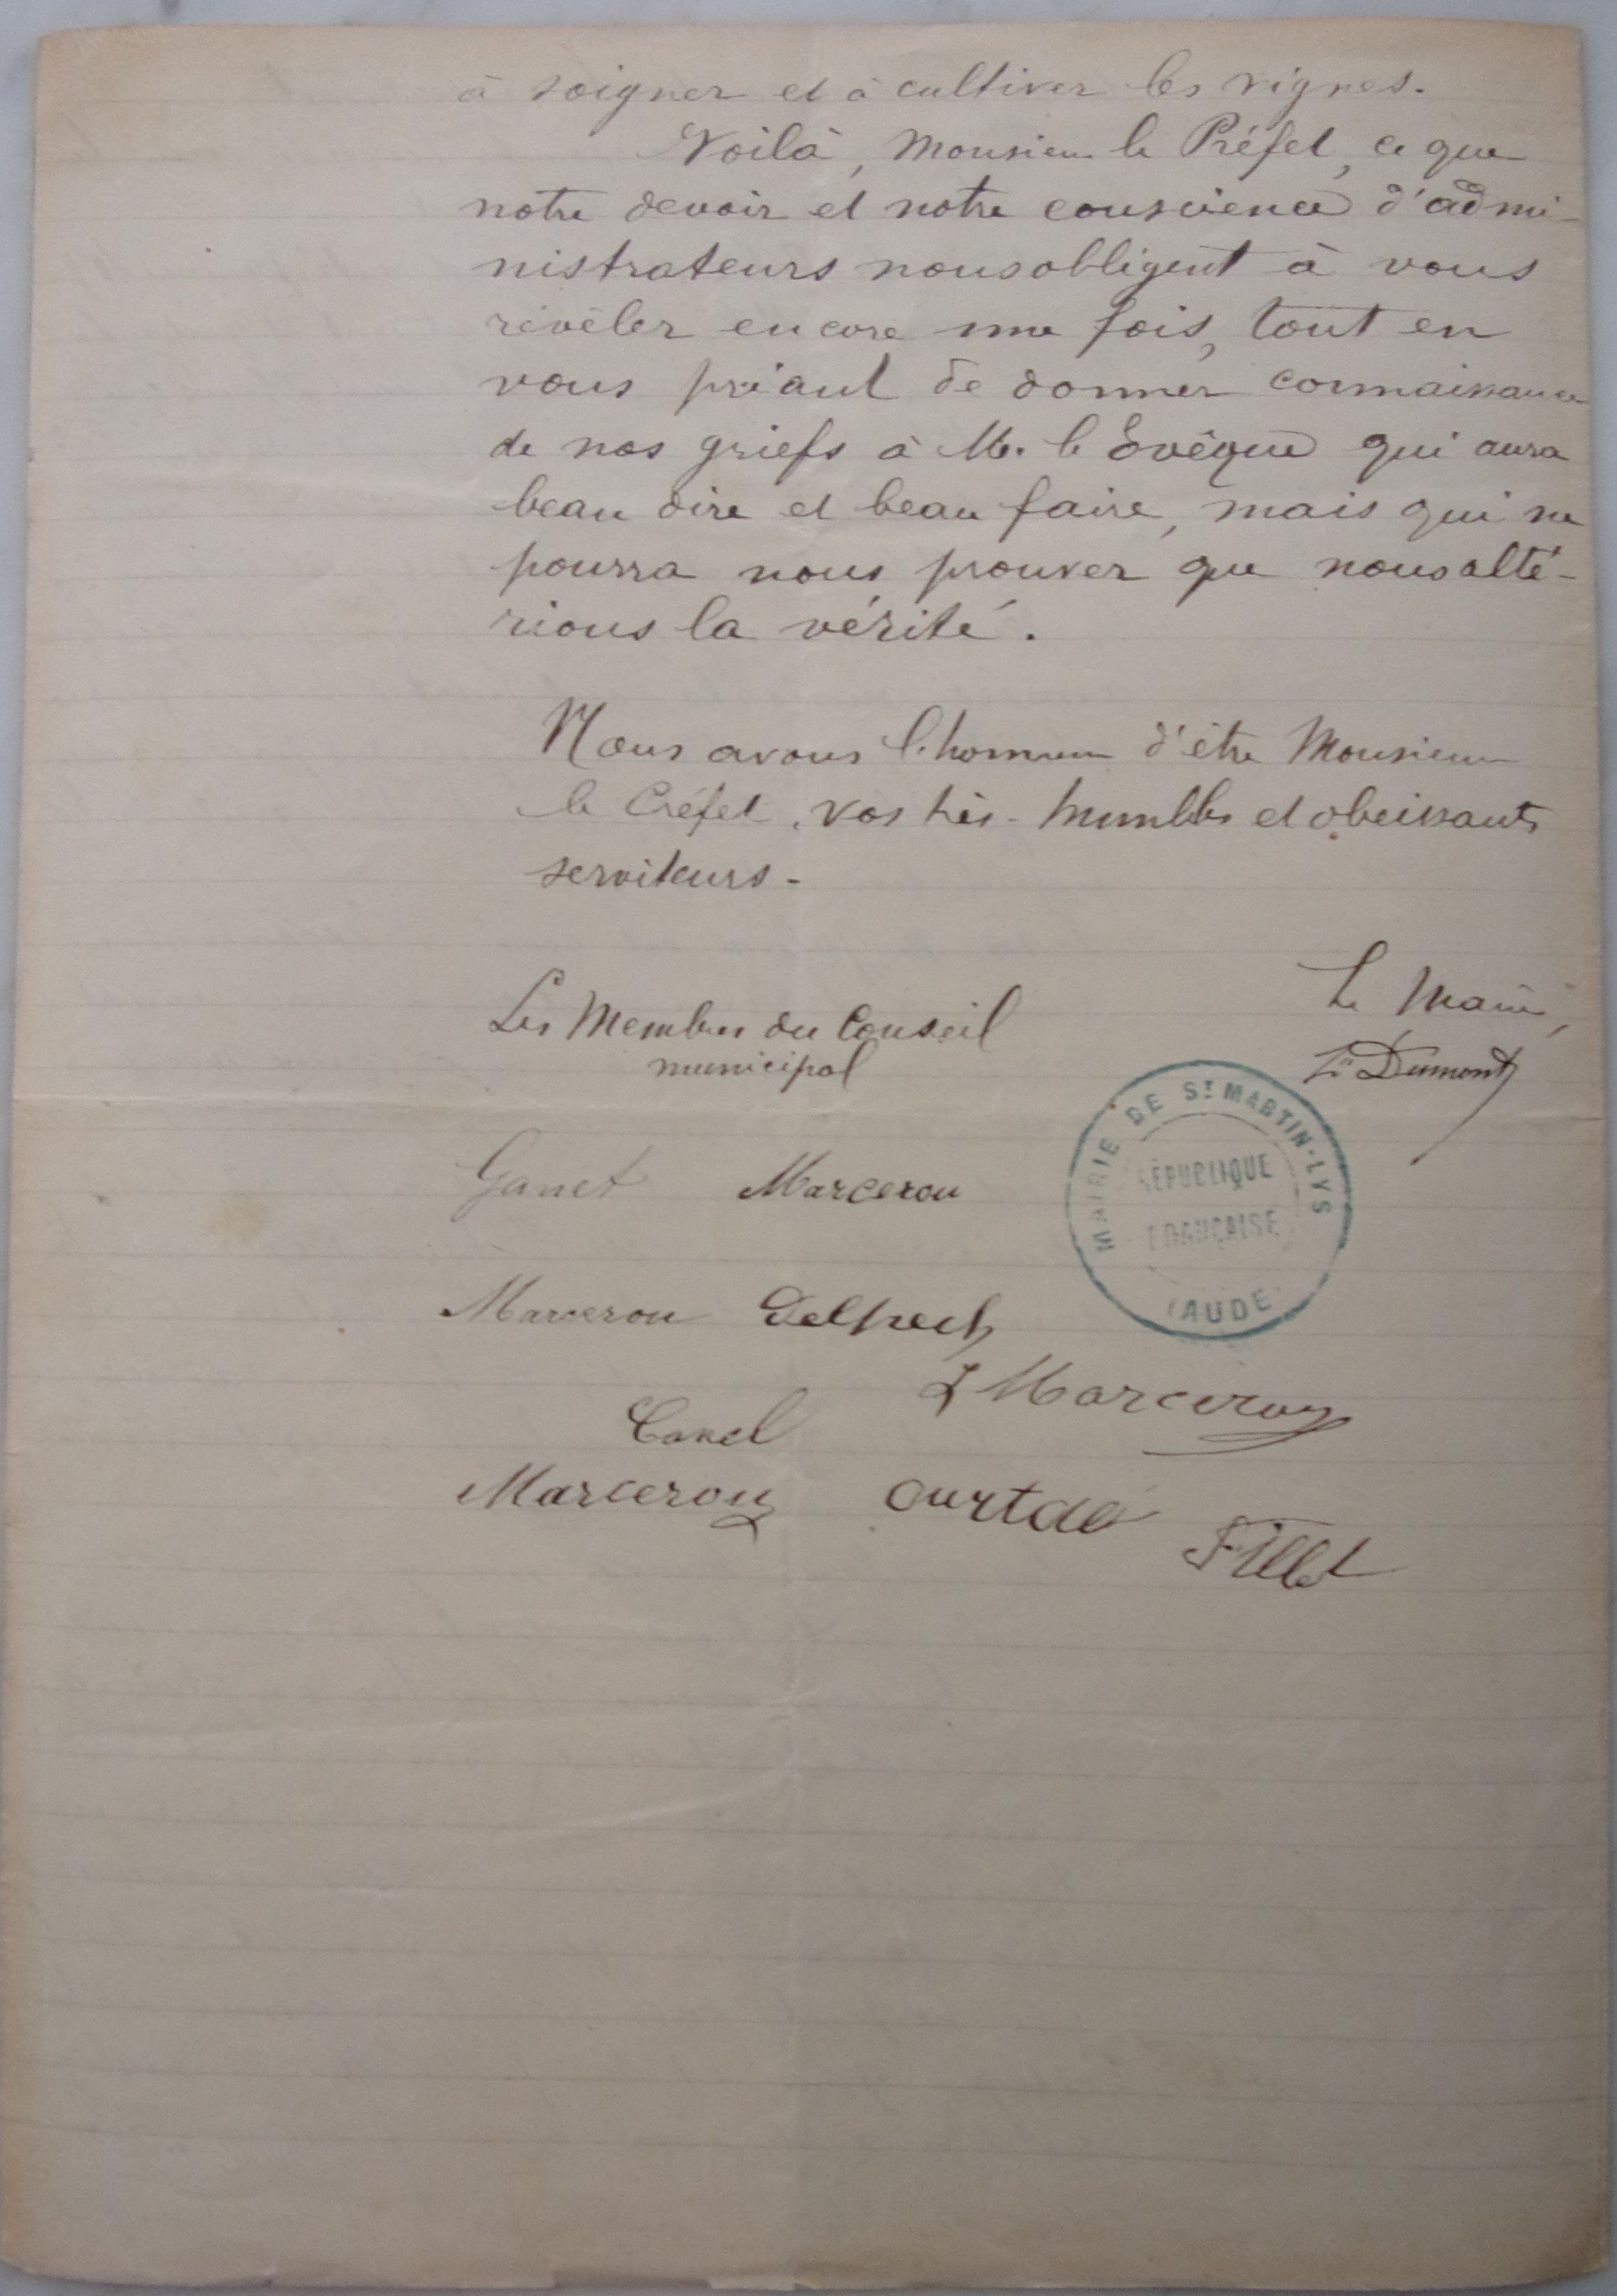 à soigner et à cultiver les vignes.
Voilà, Monsieur le Préfet, ce que
notre devoir et notre conscience d'admi-
nistrateurs nous obligent à vous
révéler encore une fois, tout en
vous priant de donner connaissance
de nos griefs à M. le Évêque qui aura
beau dire et beau faire, mais qui ne
pourra nous prouver que nous alté-
rions la vérité.
Nous avons l'honneur d'être Monsieur
le Préfet, vos très-humbles et obeissants
serviteurs.
Le Maire,
Dumont
Les Membres du Conseil
municipal
MAIRIE DE ST MARTIN-LYS
RÉPUBLIQUE
FRANÇAISE
(AUDE)
Ganet Marcerou
Marcerou Delpech
L Marcerou
Canel
Marcerou